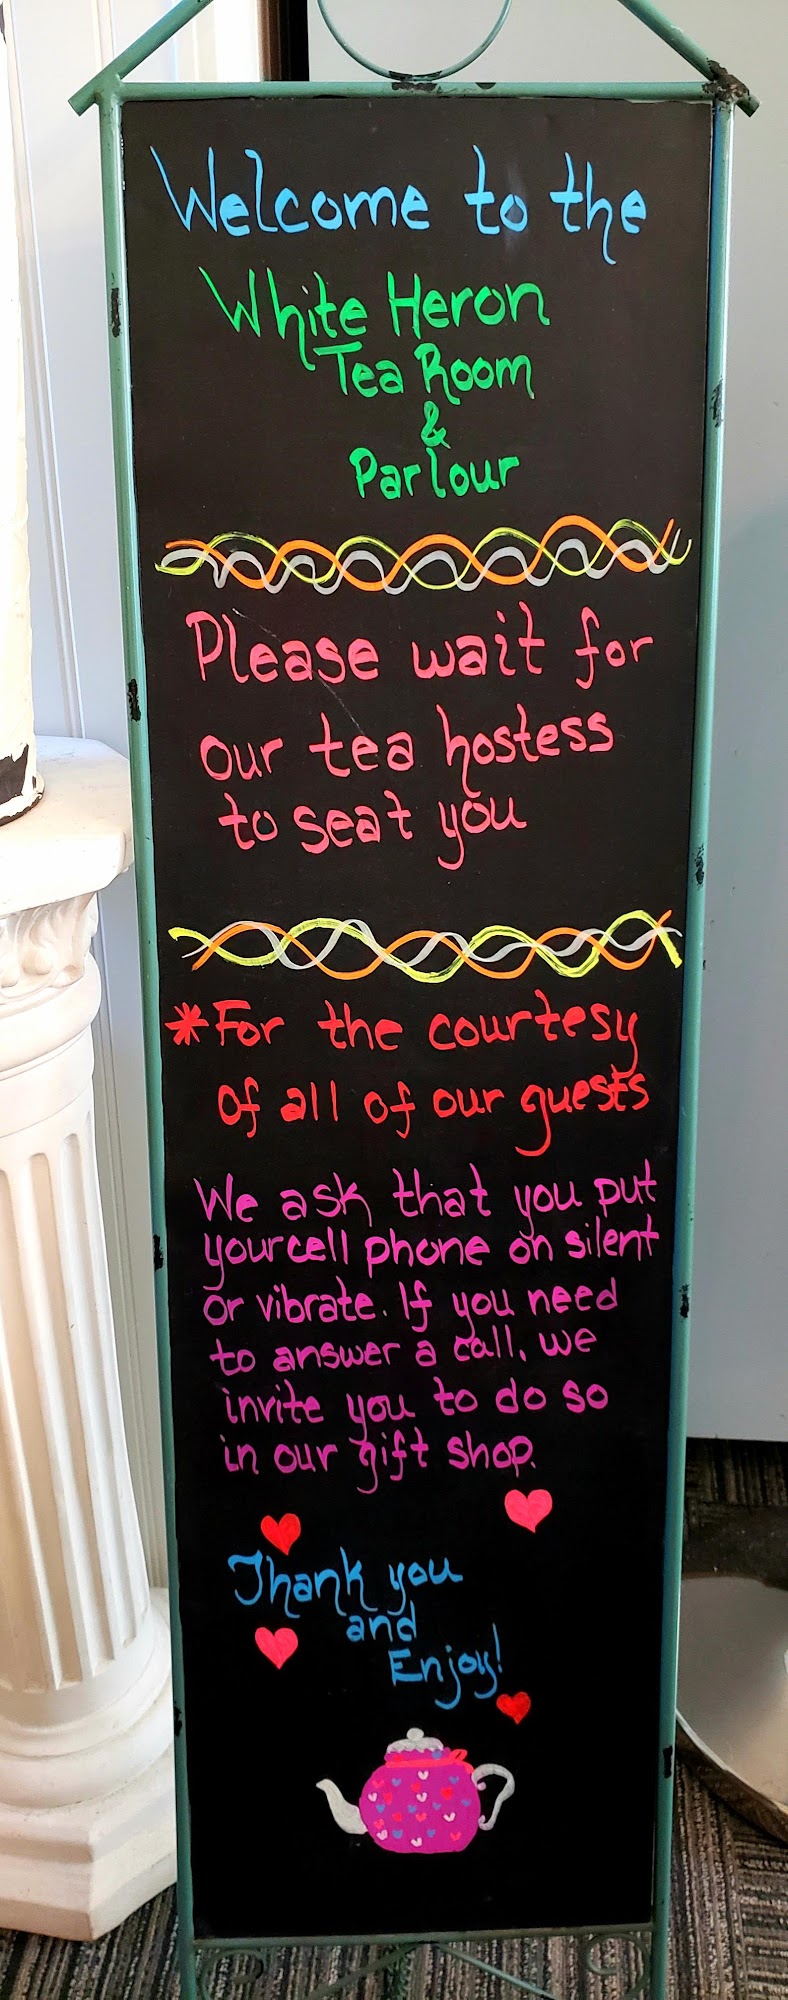 Welcome to the
White Heron
Tea Room
&
Parlour
Please wait for
our tea hostess
to seat you
*For the courtesy
of all of our guests
We ask that you put
your cell phone on silent
or vibrate. If you need
to answer a call, we
invite you to do so
in our gift shop.
Thank you
and
Enjoy!